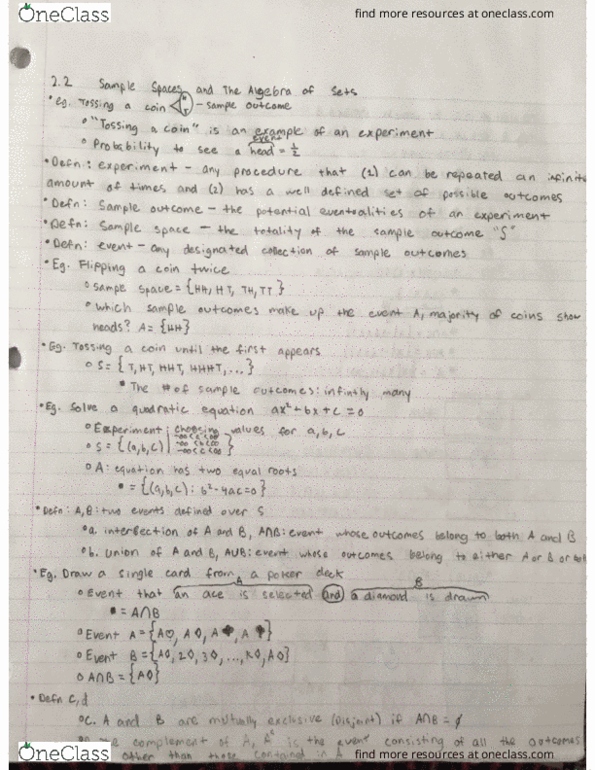 OneClass
find more resources at oneclass.com
2.2 Sample Spaces and The Algebra of Sets
• eg. Tossing a coin < H T - sampe outcome
"Tossing a coin" is an example of an experiment
event
Probability to see a head = 1/2
• Defn: experiment - any procedure that (1) can be repeated an infinite
amount of times and (2) has a well defined set of possible outcomes
• Defn: Sample outcome - the potential eventualities of an experiment
• Defn: Sample space - the totality of the sample outcome "S"
• Defn: event - any designated collection of sample outcomes
• Eg. Flipping a coin twice
sampe space = {HH, HT, TH, TT}
which sample outcomes make up the event A, majority of coins show
heads? A = {HH}
• Eg. Tossing a coin until the first appears
S = {T, HT, HHT, HHHT, ...}
The # of sample outcomes: infinitly many
• Eg. Solve a quadratic equation ax² + bx + c = 0
Experiment: choosing values for a, b, c
S = {(a,b,c) | -∞<a<∞ -∞<b<∞ -∞<c<∞}
A: equation has two equal roots
= {(a,b,c): b²-4ac=0}
• Defn: A, B: two events defined over S
a. intersection of A and B, A∩B: event whose outcomes belong to both A and B
b. union of A and B, A∪B: event whose outcomes belong to either A or B or both
• Eg. Draw a single card from a poker deck
A B
Event that an ace is selected and a diamond is drawn
= A∩B
Event A = {A♡, A♢, A♣, A♠}
Event B = {A♢, 2♢, 3♢, ..., K♢, A♢}
A∩B = {A♢}
• Defn c, d
c. A and B are mutually exclusive (disjoint) if A∩B = ∅
complement of A, Aᶜ is the event consisting of all the outcomes
other than those contained in A
OneClass
find more resources at oneclass.com